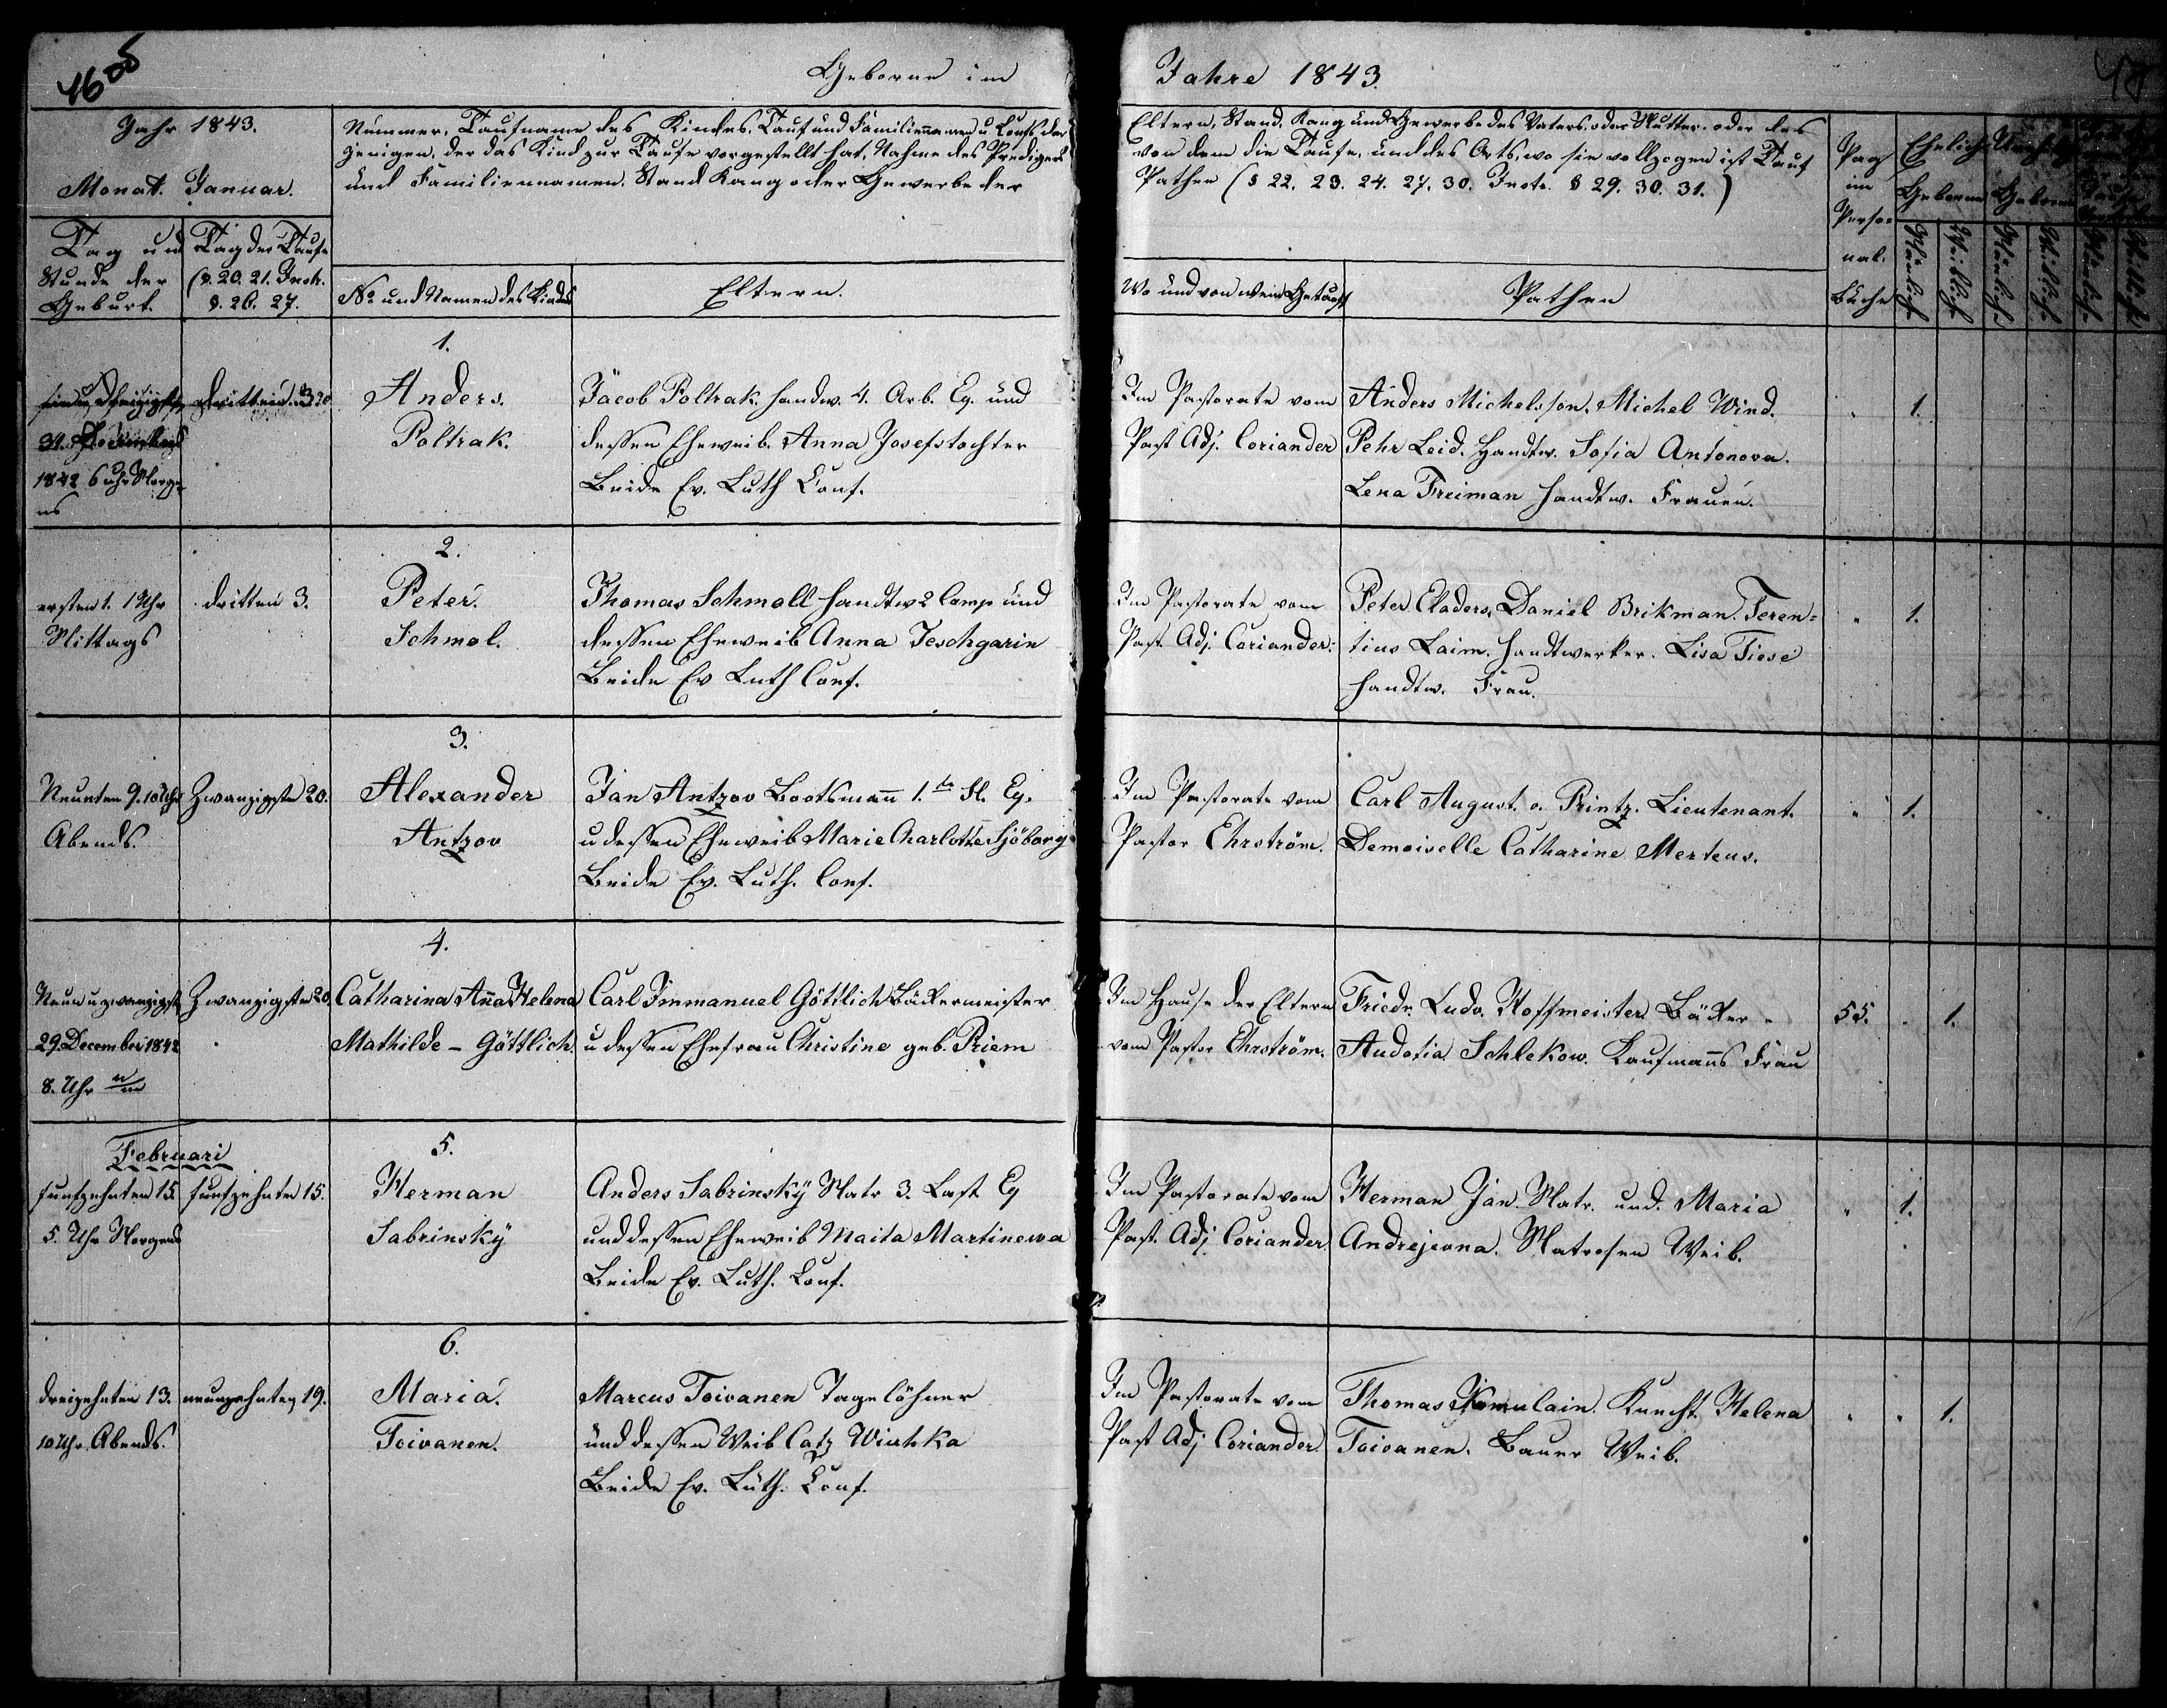 Geborne im
Jahre 1843.
Jahr 1843.
Monat. Januar.
Nummer, Taufname des Kindes, Tauf und Familiennamen u. Confs. der
jenigen, der das Kind zur Taufe vorgestellt hat, Nahme des Predigers
und Familiennamen. Stand Rang oder Gewerbe der
Eltern, Stand, Rang und Gewerbe des Vaters, oder Mutter. oder des
von dem die Taufe, und des Orts, wo sie vollzogen ist Tauf
Pathen (§ 22. 23. 24. 27. 30. Instr. § 29. 30. 31.)
Pag
im
Perso-
nal.
Buche
Eheliche
Geborne
Geborne
Männlich
Weiblich
Männlich
Weiblich
Männlich
Weiblich
Tag und
Stunde der
Geburt.
Tag der Taufe
(§. 20. 21. Instr.
§. 26. 27.
No. und Namen des Kindes
Eltern.
Wo und von wem Getauft
Pathen
1.
31. December
1842 6 Uhr Morge-
ns
dritten 3
Anders.
Poltrak.
Jacob Poltrak handw. 4. Arb. Eq. und
dessen Eheweib. Anna Josefstochter
Beide Ev. Luth Conf.
Im Pastorate vom
Past Adj. Coriander
Anders Michelsson. Michel Wind.
Pehr Leid. Handtw. Sofia Antonova.
Lena Freiman handtw. Frauen.
1.
2.
ersten 1. 1 Uhr
Mittags
dritten 3.
Peter.
Schmol.
Thomas Schmoll handtw 2 Comp und
dessen Eheweib Anna Jeschgarin
Beide Ev Luth Conf.
Im Pastorate vom
Past. Adj. Coriander.
Peter Eladers, Daniel Brikman. Teren=
tius Laim. handtwerker. Lisa Tiese
handtw. Frau.
1.
3.
Neunten 9. 10 Uhr
Abends.
Zwanzigste 20.
Alexander
Antzov
Jan Antzov Bootsmañ 1.te Fl. Eq.
u dessen Eheweib Marie Charlotte Sjöborg
Beide Ev. Luth. Conf.
Im Pastorate vom
Pastor Ehrström.
Carl August. v. Printz. Lieutenant.
Demoiselle Catharine Mertens.
1.
4.
Neun u zwanzigste
29. December 1842
8. Uhr
Zwanzigste 20.
Catharina Aña Helena
Mathilde - Göttlich.
Carl Immanuel Göttlich Bäckermeister
u dessen Ehefrau Christine geb. Priem
Im Hause der Eltern
vom Pastor Ehrström.
Friedr. Ludv. Hoffmeister Bäcker
Audotia Schlekow. Kaufmañs Frau
55.
1.
Februari
5.
funfzehnten 15.
5. Uhr Morgens
funfzehnte 15.
Herman
Sabrinsky
Anders Sabrinsky Matr 3. Last Eq
und dessen Eheweib Maita Martinewa
Beide Ev. Luth. Conf.
Im Pastorate vom
Past. Adj. Coriander.
Herman Jan. Matr. und. Maria
Andrejevna. Matrosen Weib.
1.
6.
dreizehnten 13.
10 Uhr Abends.
neunzehnten 19.
Maria.
Toivanen.
Marcus Toivanen Tagelöhner
und dessen Weib Catz Wiuhka
Beide Ev. Luth. Conf.
Im Pastorate vom
Past Adj Coriander.
Thomas Komulain. Knecht. Helena
Toivanen. Bauer Weib.
1.